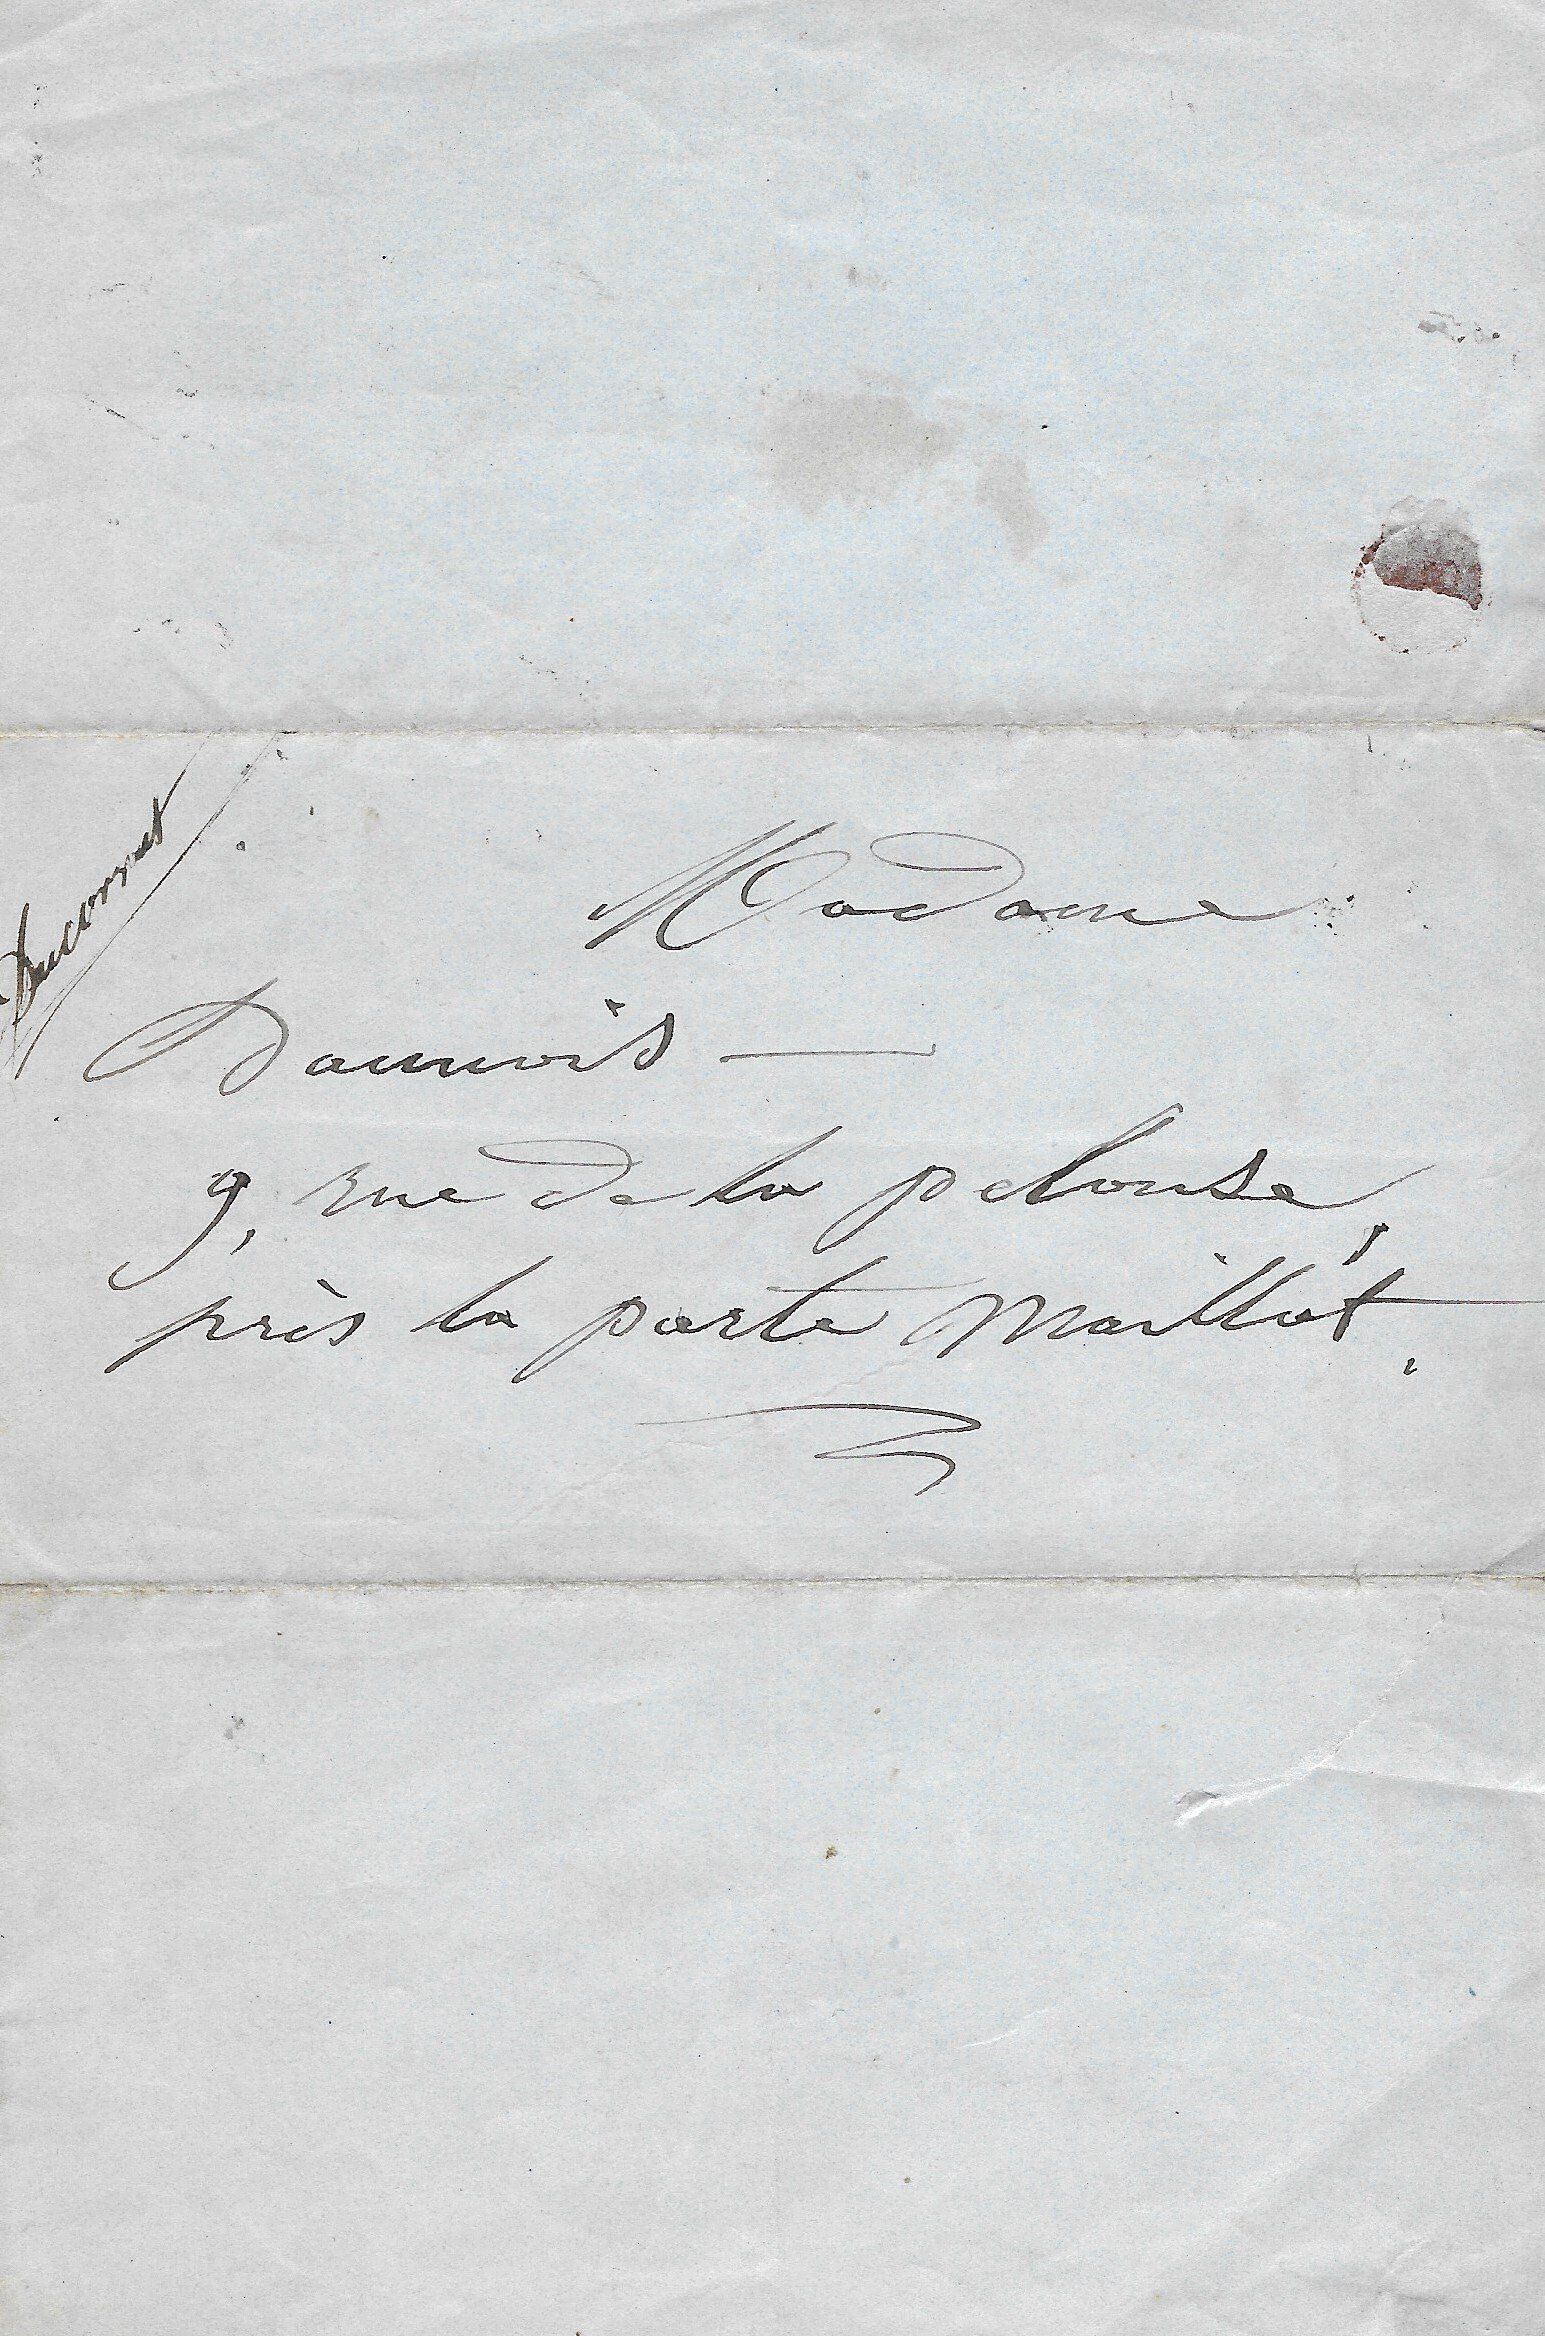 Ducornet
Madame
Daunois —
9, rue de la pelouse,
près la porte Maillot.